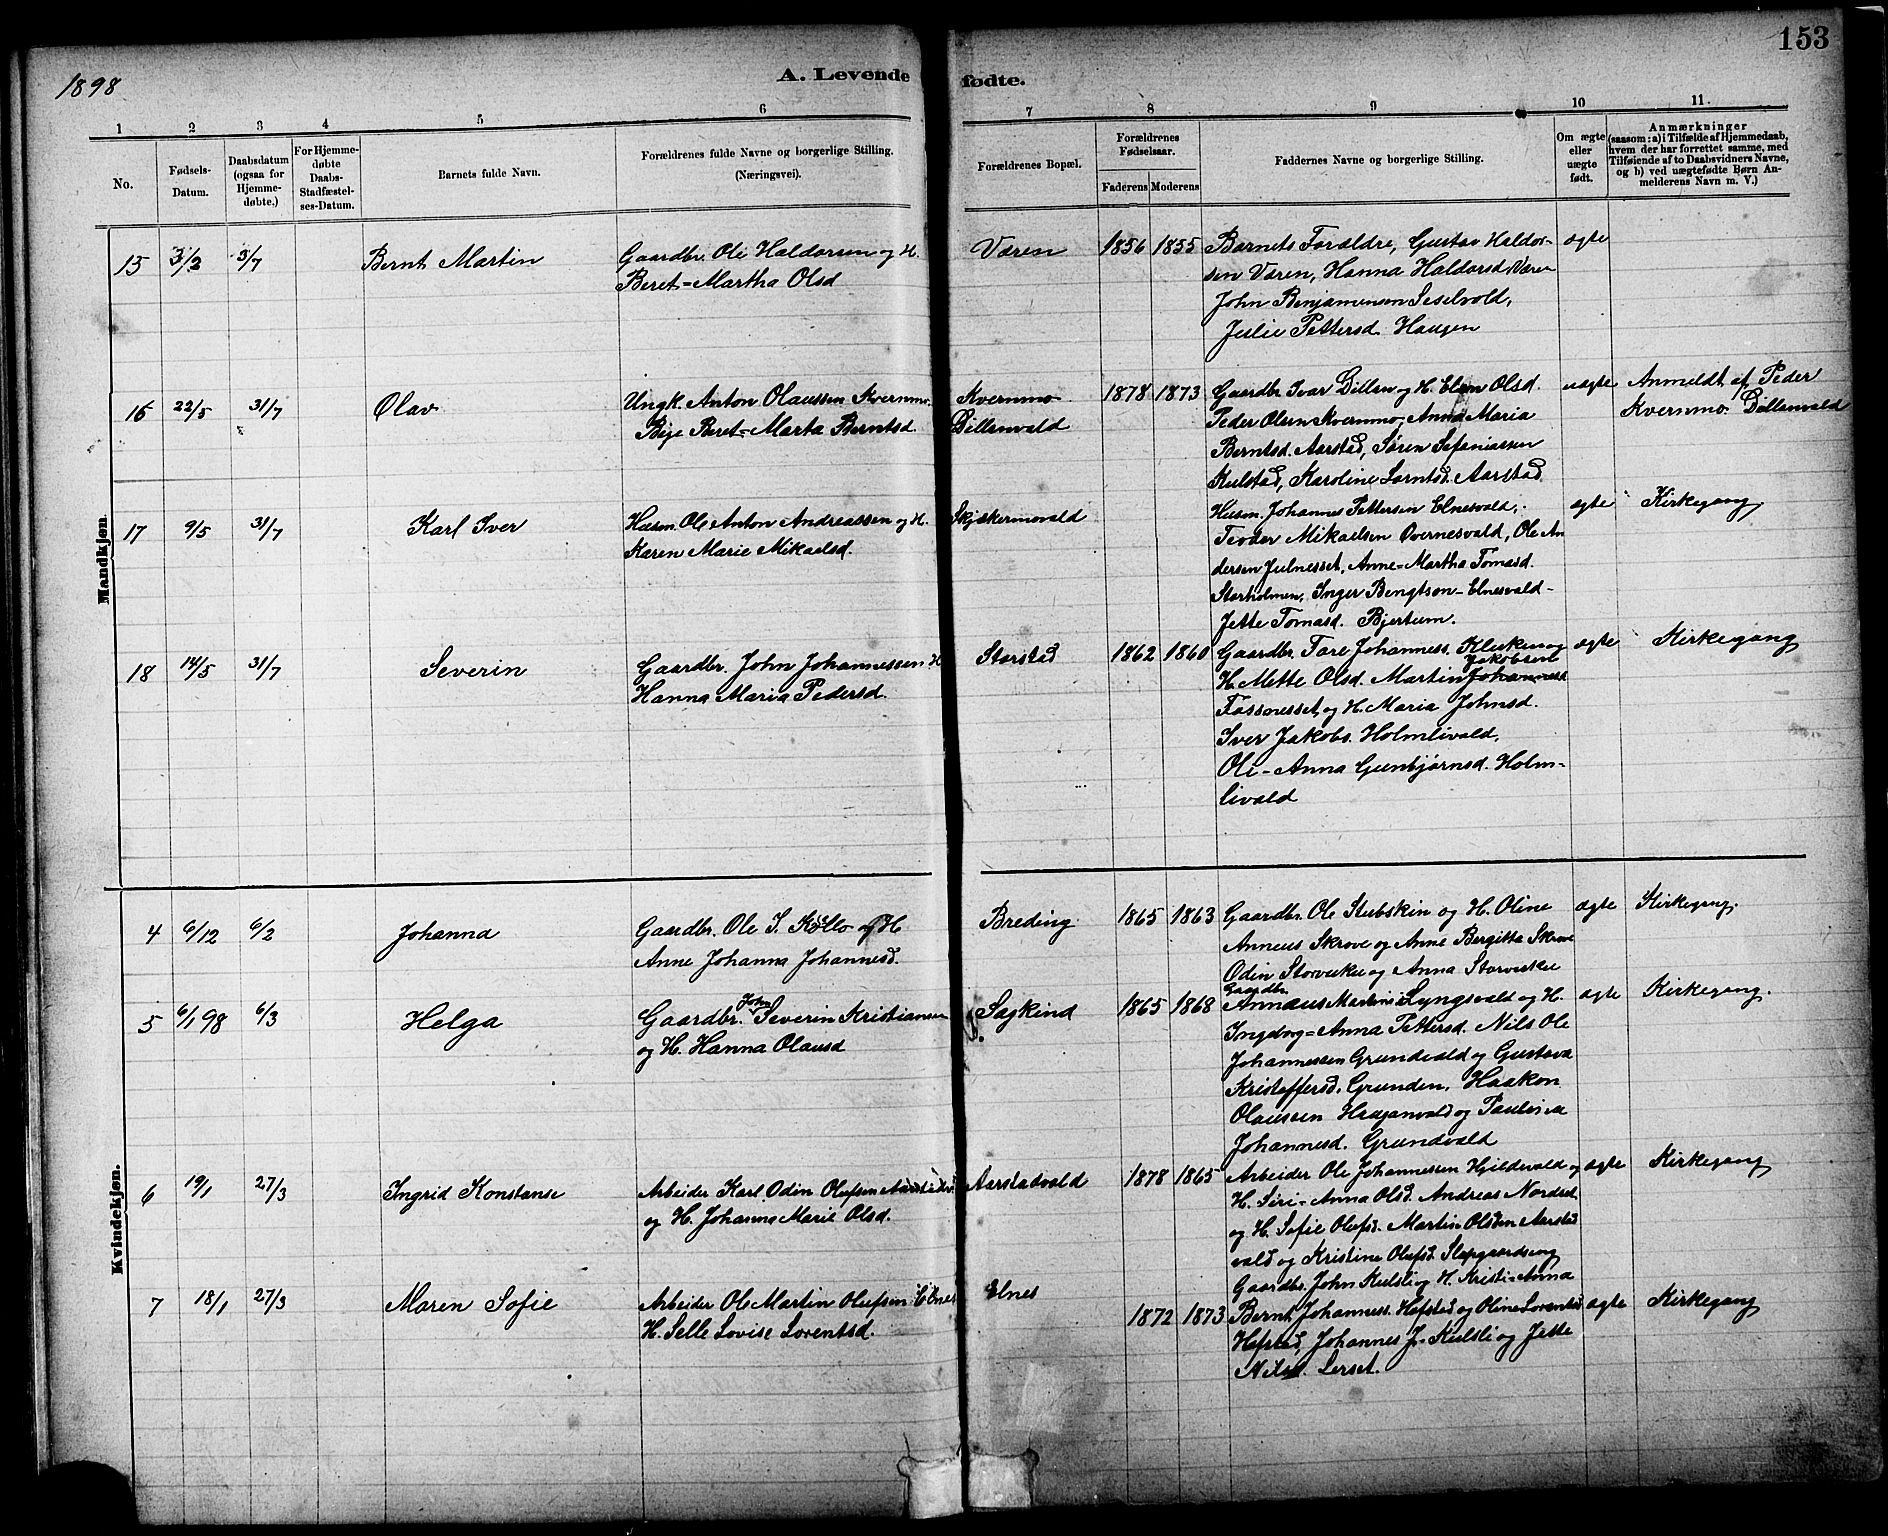 1898
A. Levende fødte.
153
1 2 3 4 5 6 7 8 9 10 11.
No.
Fødsels-
Datum.
Daabsdatum
(ogsaa for
Hjemme-
døbte.)
For Hjemme-
døbte
Daabs-
Stadfæstel-
ses-Datum.
Barnets fulde Navn.
Forældrenes fulde Navne og borgerlige Stilling.
(Næringsvei).
Forældrenes Bopæl.
Forældrenes
Fødselsaar.
Faderens Moderens
Faddernes Navne og borgerlige Stilling.
Om ægte
eller
uægte
født.
Anmærkninger
(saasom: a) i Tilfælde af Hjemmedaab,
hvem der har forrettet samme, med
Tilføiende af to Daabsvidners Navne,
og b) ved uægtefødte Børn An-
melderens Navn m. V.)
Mandkjøn.
15 3/2 3/7 Bernt Martin Gaardbr. Ole Haldorsen og H.
Beret-Martha Olsd
Væren 1856 1855 Barnets Forældre, Gustav Haldor-
sen Væren, Hanna Haldorsd Væren
John Benjaminsen Seselvold,
Pettersd. Haugen
ægte
16 22/5 31/7 Olav Ungk. Anton Olaussen Kvernmo.
Pige Beret-Marta Berntsd.
Kvernmo
Dillanvald
1878 1873 Gaardbr Ivar Dillan og H. Elen Olsd.
Peder Olsen Kvernmo, Anna Maria
Berntsd. Aarstad, Søren Sefaniassen
Kulstad, Karoline Aarstad
uægte Anmeldt af Peder
Kvernmo Dillanvald
17 9/5 31/7 Karl Iver Husm. Ole Anton Andreassen og H.
Karen Marie Mikaelsd.
Skjækermovald
Husm. Johannes Pettersen Elnesvald,
Teodor Mikaelsen Overnesvald, Ole An
dersen Julnesset, Anne-Martha Tomasd.
Storholmen, Inger Bengtson-Elnesvald-
Jette Tomasd. Bjertum.
ægte Kirkegang
18 14/5 31/7 Severin Gaardbr. John Johannessen H
Hanna Maria Pedersd.
Storstad 1862 1860 Gaardbr. Tore Johanness. Kluken og
Jakobsen
H. Mette Olsd. Martin Johanness
Fossnesset, og H. Maria Johnsd.
Iver Jakobs. Holmlivald,
Oli-Anna Gunbjørnsd. Holm-
livald
ægte Kirkegang
Kvindekjøn.
4 6/12 6/2 Johanna Gaardbr. Ole I. og H
Anne Johanna Johannesd.
Breding 1865 1863 Gaardbr. Ole Stubskin og H. Oline
Anneus Skrove og Anne Bergitta Skrove
Odin Storvukue og Anna Storvukue
ægte Kirkegang.
5 6/1 98 6/3 Helga Gaardbr. John Severin Kristiansen
og H. Hanna Olausd
S. Sagkind 1865 1868 Gaardbr.
Annæus Martins Lyngsvald og H.
Ingeborg-Anna Pettersd. Nils Ole
Johannessen Grundvald og Gustava
Kristoffersd. Grunden, Haakon
Olaussen Haaganvald og Paulina
Johannesd. Grundvald
ægte Kirkegang.
6 19/1 27/3 Ingrid Konstanse Arbeider Karl Odin Olufsen
og H. Johanna Marie Olsd.
Aarstadvald 1878 1865 Arbeider Ole Johannessen Hjildevald og
H. Siri-Anna Olsd. Andreas Nordset
og H. Sofie Olufsd. Martin Olsen Aarstad
vald og Kristine Olufsd. Slapgaardseng
ægte Kirkegang
7 18/1 27/3 Maren Sofie Arbeider Ole Martin Olufsen Elnes
H. Selle Lovise Lorentsd.
Elnes 1872 1873 Gaardbr. John Kulsli og H. Kristi-Anna
Bernt Johanness. Hofstad og Oline Lorentsd
Hofstad, Johannes J. Kulsli og Jette
Nilsd. Lerset.
ægte Kirkegang